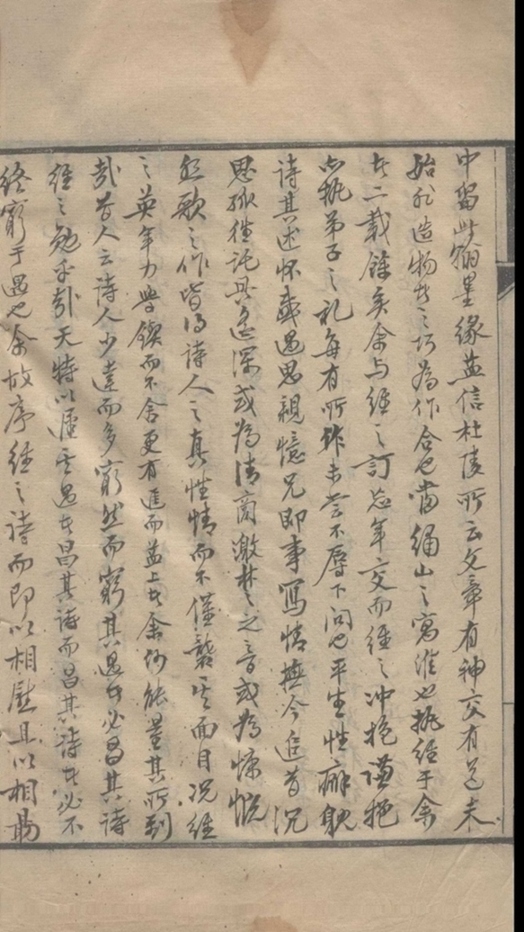 中留此翰墨緣益信杜陵所云文章有神交有道未
始非造物者之巧為作合也當緬山之寓淮也挑經于余
者二載餘矣余与經之訂忘年交而經之冲挹謙抱
必執弟子之礼每有所作未嘗不辱下问也平生性癖躭
诗其述怀感遇思親憶兄即事寫情撫今追昔沉
思孤往託興遥深或為清商激楚之音或為慷慨
悲歌之作皆得诗人之真性情而不僅襲其面目况經
之英年力學鍥而不舍更有進而益上者余何能量其所到
哉昔人云诗人少達而多窮然而窮其遇者必昌其诗
經之勉乎哉天特以阨其遇者昌其诗而昌其诗者必不
終窮于遇也余故序經之诗而即以相慰且以相勗